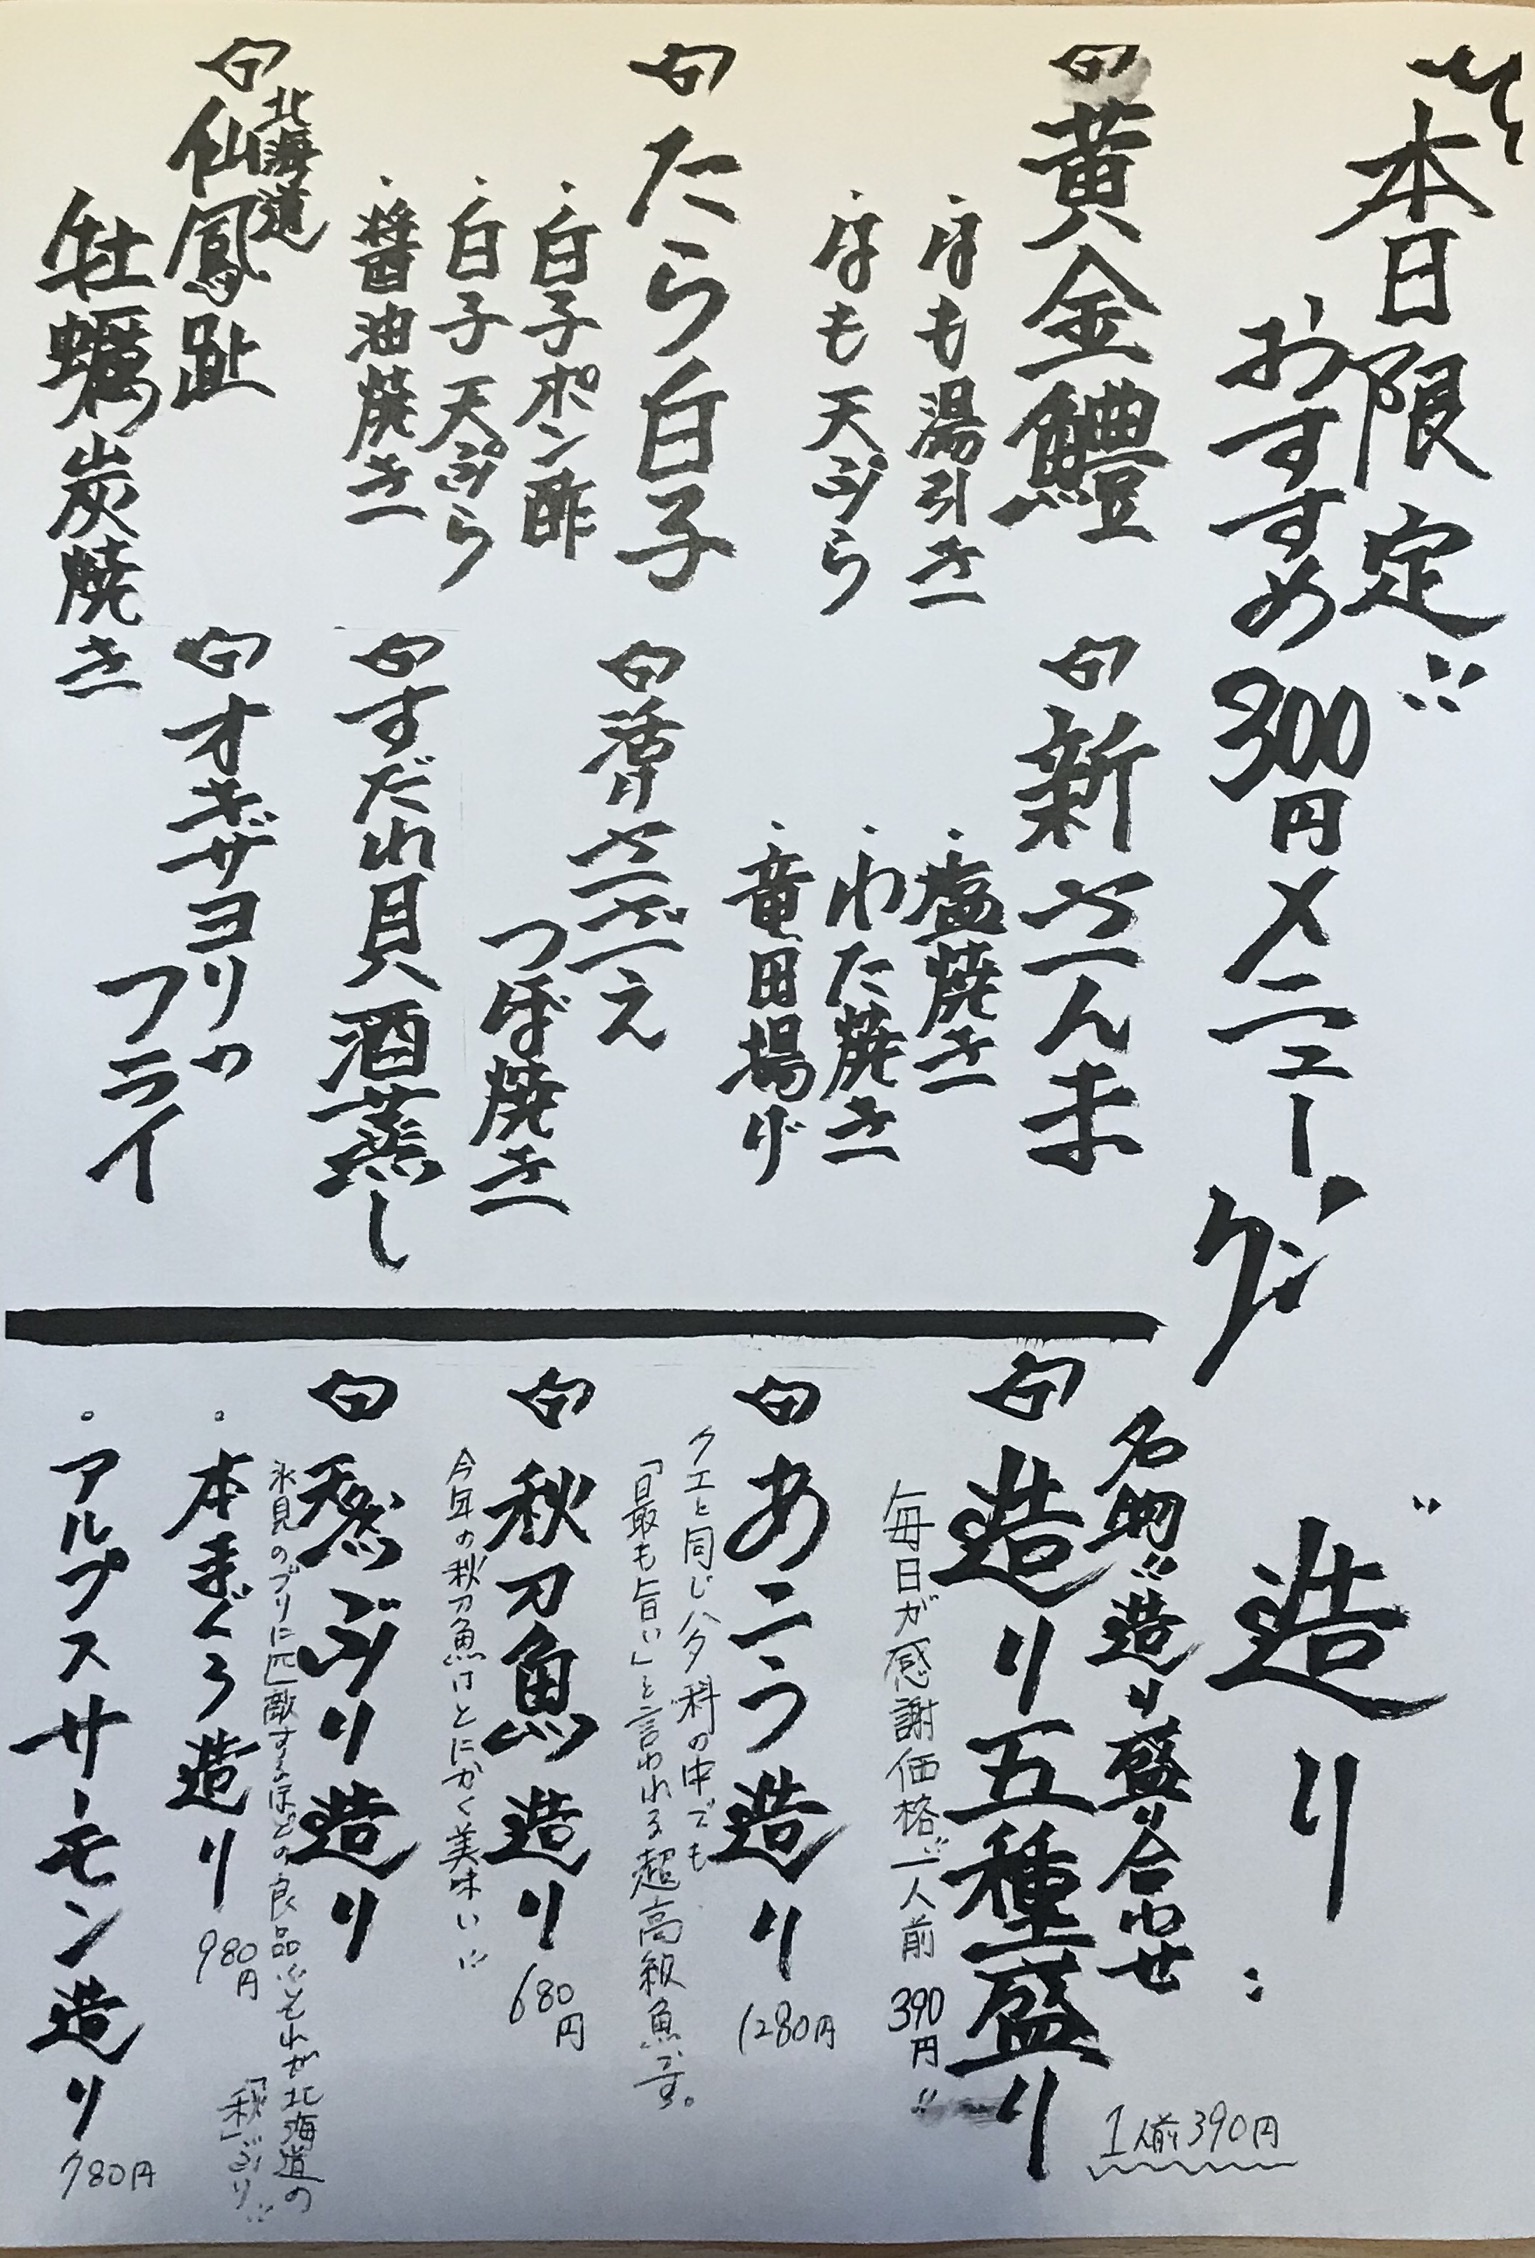 本日限定!!
おすすめ300円メニュー
旬
黄金鱧
・はも湯引き
・はも天ぷら
旬
たら白子
・白子ポン酢
・白子天ぷら
・醤油焼き
旬
北海道
仙鳳趾
牡蠣炭焼き
旬
新さんま
・塩焼き
・わた焼き
・竜田揚げ
旬
活けさざえ
つぼ焼き
旬
すだれ貝酒蒸し
旬
オキザヨリの
フライ
造り
名物!!造り盛り合わせ
1人前390円
旬
造り五種盛り
毎日が感謝価格!!一人前390円!!
旬
あこう造り
1280円
クエと同じハタ科の中でも
「日最も旨い」と言われる超高級魚です。
旬
秋刀魚造り
680円
今年の秋刀魚はとにかく美味い!!
旬
天然ぶり造り
氷見のブリに匹敵するほどの良品!!それが北海道の
「秋」ぶり!!
。本まぐろ造り
980円
。アルプスサーモン造り
780円